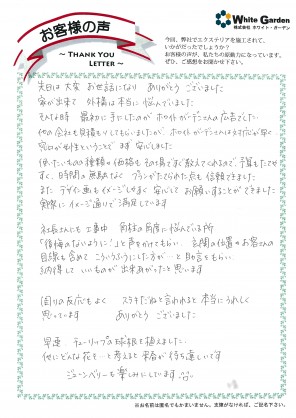 お客様の声
~ THANK YOU LETTER ~
White Garden
株式会社 ホワイト・ガーデン
今回、弊社でエクステリアを施工されて、
いかがだったでしょうか?
お客様の声が、私たちの原動力になっています。
ぜひ、ご感想をお聞かせ下さい。
先日は大変 お世話になり ありがとう ございました
家が出来て 外構は本当に悩んでいました
そんな時 最初に 手にしたのが ホワイトガーデンさんの広告でした
他の会社も見積もりしてもらいましたが ホワイトガーデンさんは対応が早く
窓口が女性ということで 安心しました
使いたいものの種類や価格も その場ですぐ教えてくれるので 予算もたてやすく
時間の無駄なく プランがたてられた点も信頼できました
また デザイン画も イメージしやすく 安心して お願いすることができました
実際に イメージ通りで 満足しています
社長さんにも 工事中 角柱の角度に悩んでいる所
「後悔のないように!」と声をかけてもらい 玄関の位置やお客さんの
目線も含めて こういうふうにした方が… と助言をもらい
納得して いいものが出来あがったと思います
周りの反応もよく ステキだねと言われると 本当にうれしく
思っています ありがとう ございました
早速 チューリップの球根を植えました
他にどんな花を… と考えると 来春が待ち遠しいです
ジューンベリーも楽しみにしています
※お名前は匿名でもかまいません。支障がなければ、ご記名下さい。